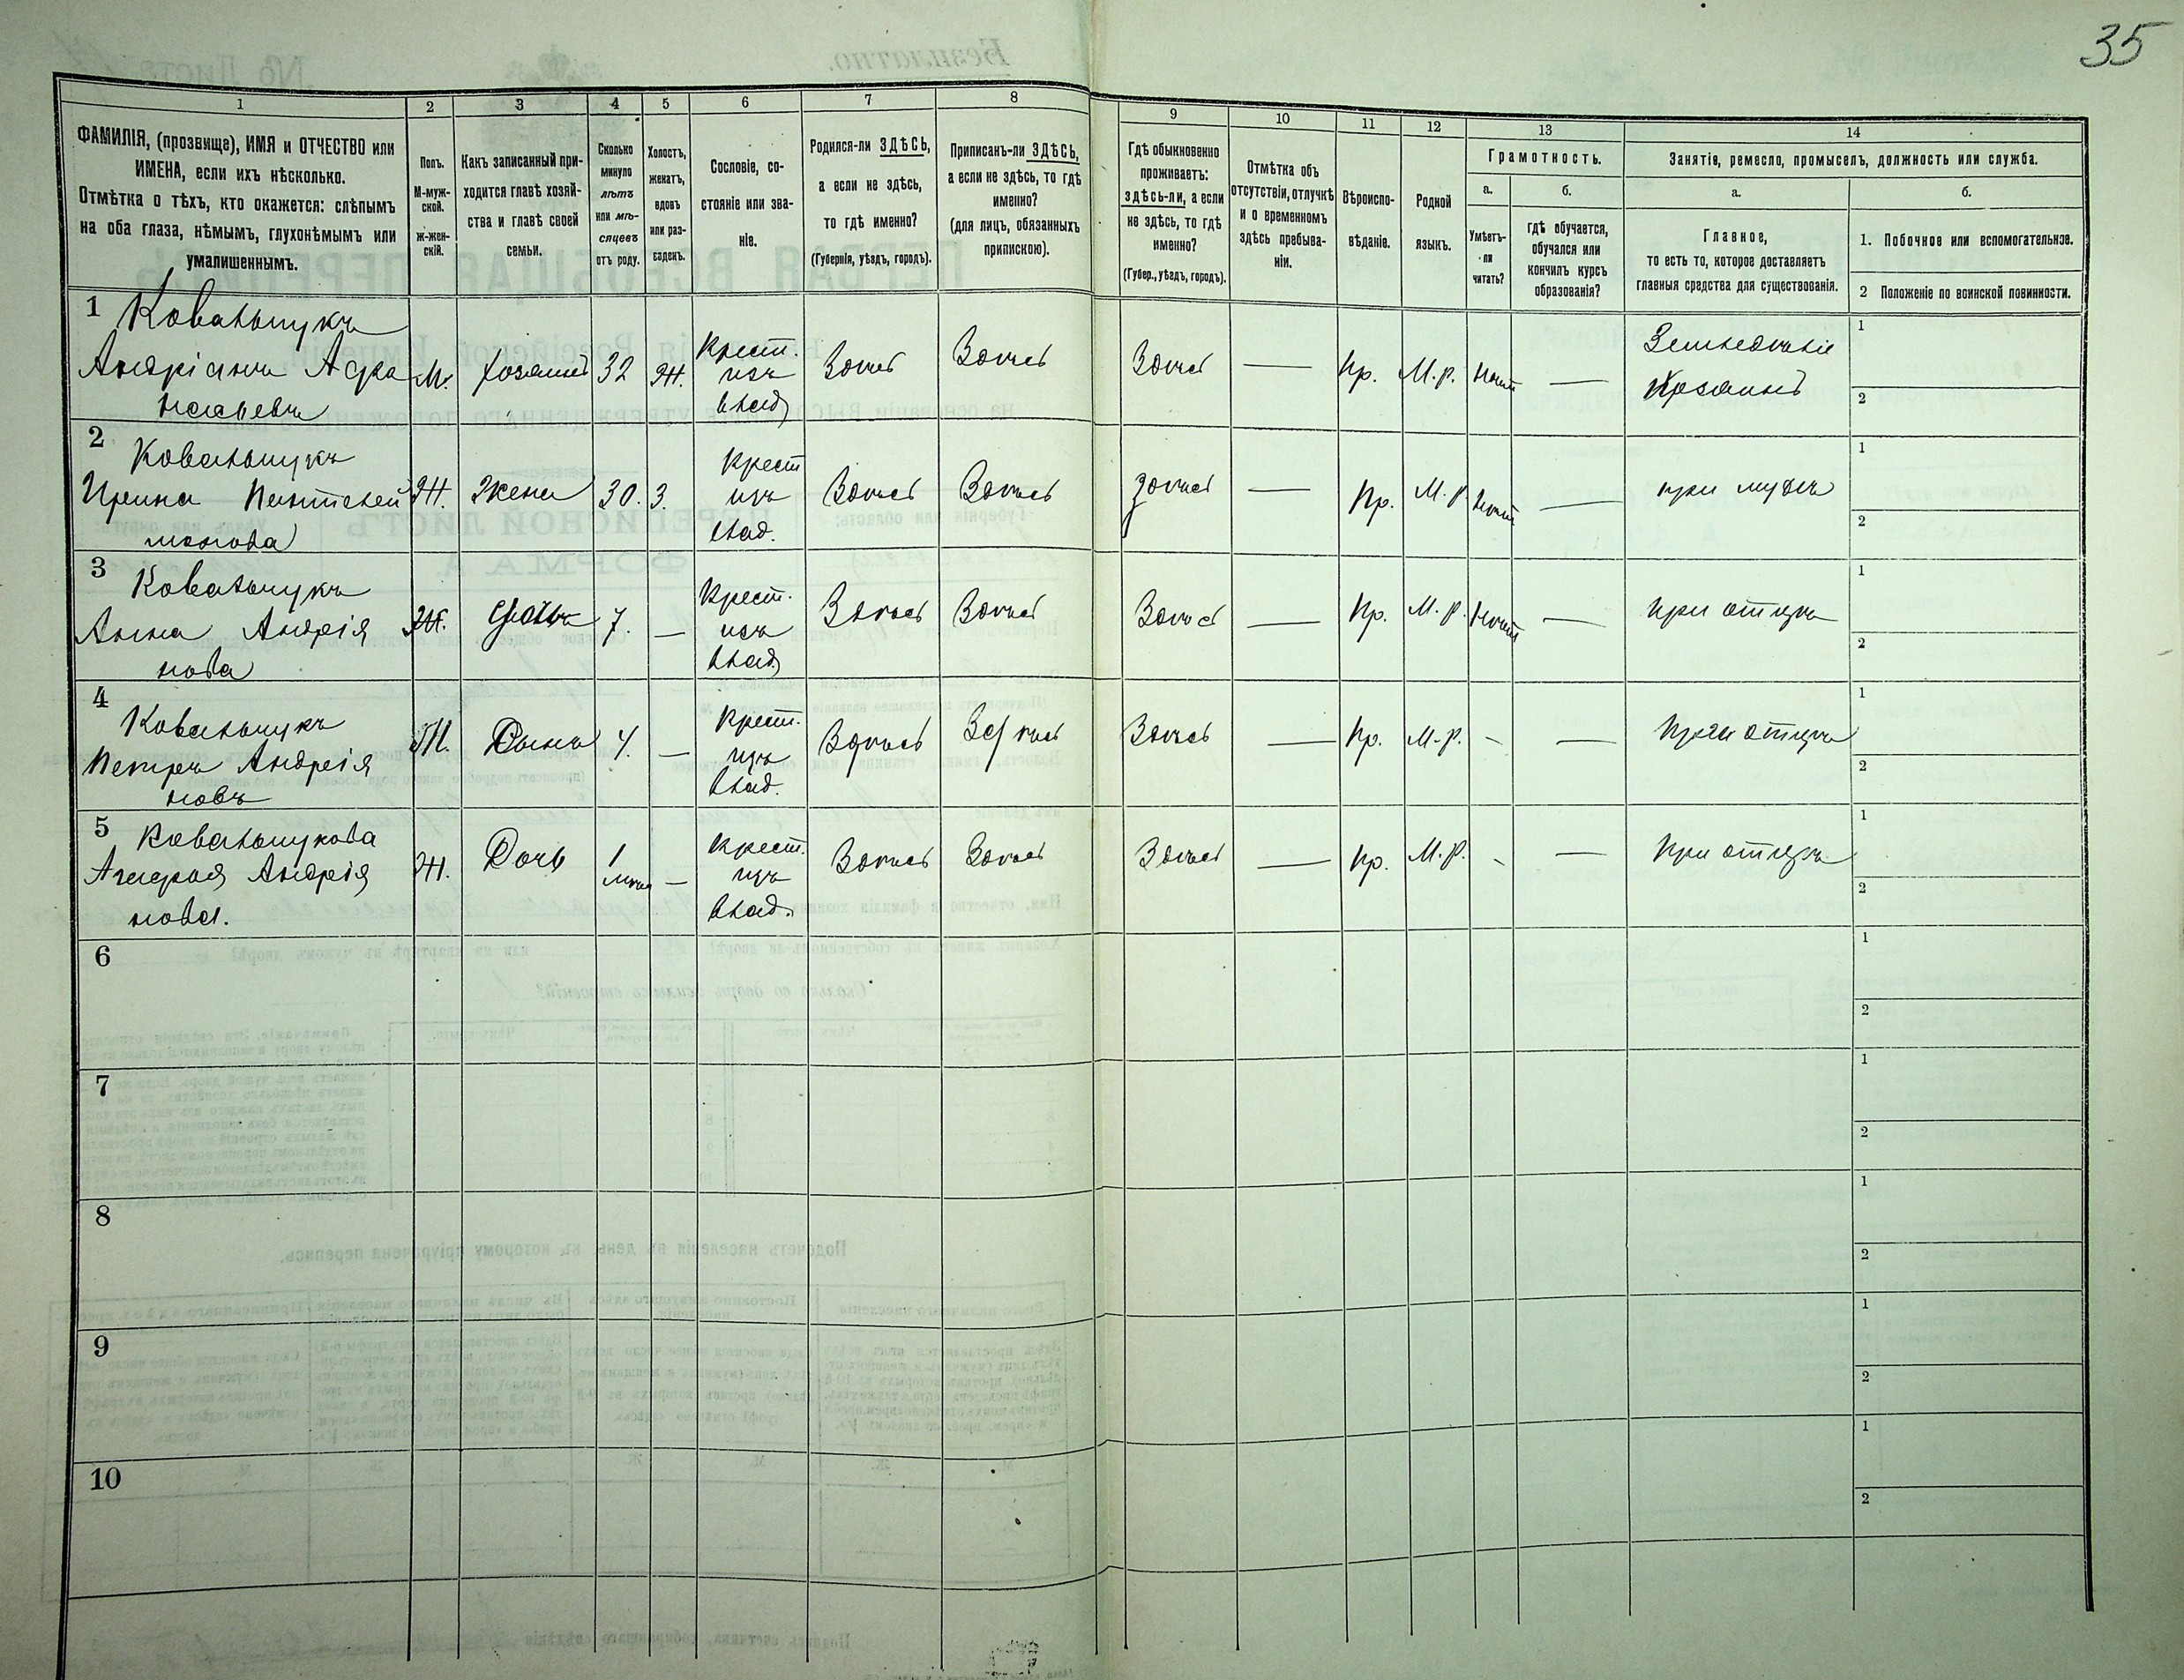 35
1 2 3 4 5 6 7 8 9 10 11 12 13 14
ФАМИЛІЯ, (прозвище), ИМЯ и ОТЧЕСТВО или
ИМЕНА, если ихъ нѣсколько.
Отмѣтка о тѣхъ, кто окажется: слѣпымъ
на оба глаза, нѣмымъ, глухонѣмымъ или
умалишеннымъ.
Полъ.
М-муж-
ской.
Ж-жен-
скій.
Какъ записанный при-
ходится главѣ хозяй-
ства и главѣ своей
семьи.
Сколько
минуло
лѣтъ
или мѣ-
сяцевъ
отъ роду.
Холостъ,
женатъ,
вдовъ
или раз-
веденъ.
Сословіе, со-
стояніе или зва-
ніе.
Родился-ли ЗДѢСЬ,
а если не здѣсь,
то гдѣ именно?
(Губернія, уѣздъ, городъ).
Приписанъ-ли ЗДѢСЬ,
а если не здѣсь, то гдѣ
именно?
(для лицъ, обязанныхъ
припискою).
Гдѣ обыкновенно
проживаетъ:
здѣсь-ли, а если
не здѣсь, то гдѣ
именно?
(Губер., уѣздъ, городъ).
Отмѣтка объ
отсутствіи, отлучкѣ
и о временномъ
здѣсь пребыва-
ніи.
Вѣроиспо-
вѣданіе.
Родной
языкъ.
Грамотность.
а.
Умѣетъ-
ли
читать?
б.
гдѣ обучается,
обучался или
кончилъ курсъ
образованія?
Занятіе, ремесло, промыселъ, должность или служба.
а.
Главное,
то есть то, которое доставляетъ
главныя средства для существованія.
б.
1. Побочное или вспомогательное.
2 Положеніе по воинской повинности.
1 Ковальчукъ
Андріанъ Афа
насьевъ
М. Хозяинъ 32 Ж. Крест.
изъ
влад. Здѣсь Здѣсь Здѣсь — Пр. М.р. Нѣтъ — Земледѣліе
Хозяинъ 1
2
2 Ковальчукъ
Ирина Пантелей
монова
Ж. Жена 30. З. Крест
изъ
влад. Здѣсь Здѣсь Здѣсь — Пр. М.р. Нѣтъ — при мужѣ 1
2
3 Ковальчукъ
Анна Андрія
нова
Ж. Дочь 7. — Крест.
изъ
влад. Здѣсь Здѣсь Здѣсь — Пр. М.р. Нѣтъ — при отцѣ 1
2
4 Ковальчукъ
Петръ Андрія
новъ
М. Сынъ 4. — Крест.
изъ
влад. Здѣсь Здѣсь Здѣсь — Пр. М.р. - — при отцѣ 1
2
5 Ковальчукова
Агафія Андрія
нова.
Ж. Дочь 1
мѣс. — Крест.
изъ
влад. Здѣсь Здѣсь Здѣсь — Пр. М.р. - — При отцѣ 1
2
6 1
2
7 1
2
8 1
2
9 1
2
10 1
2